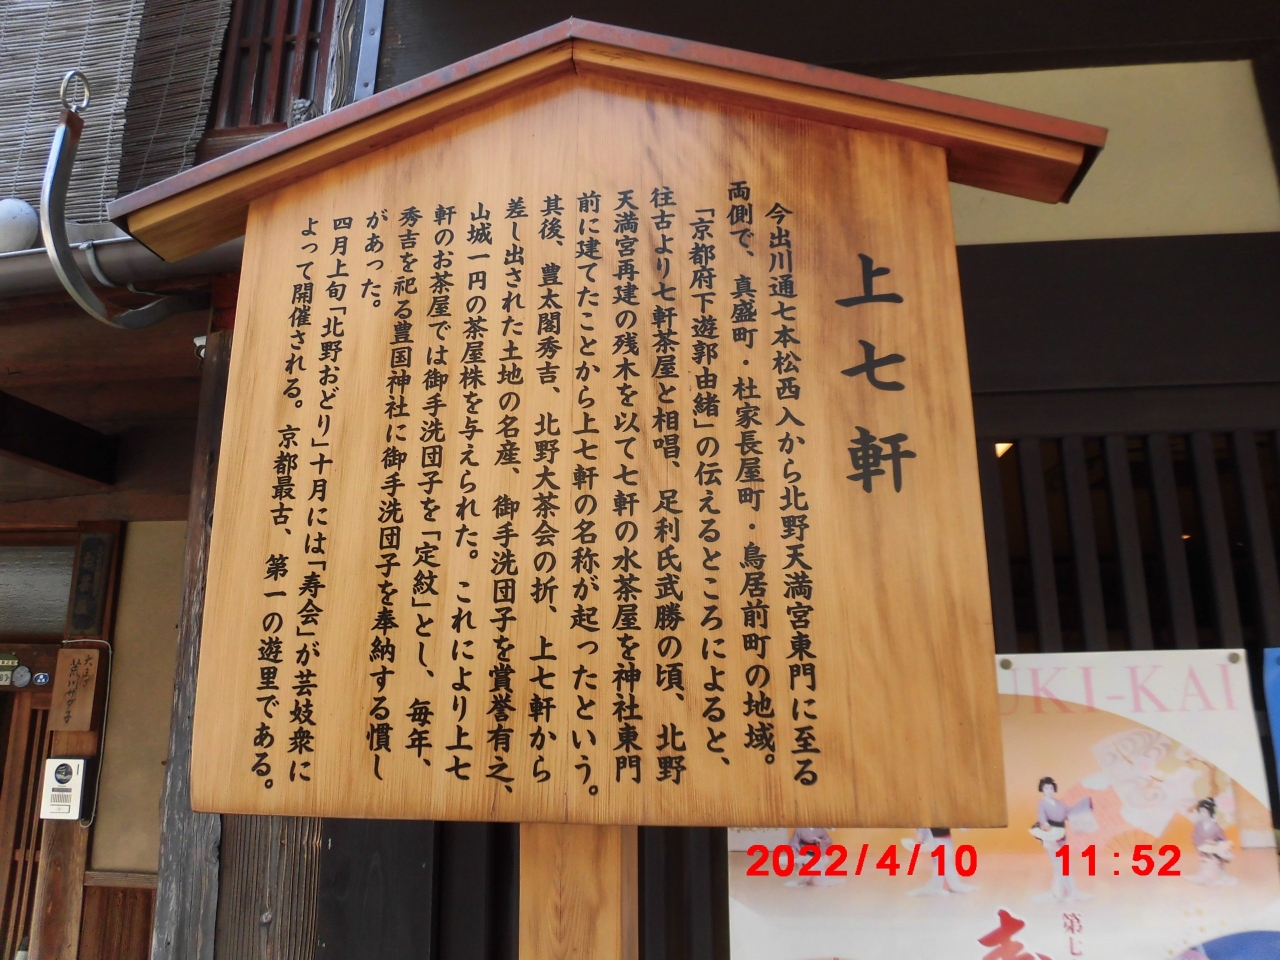 上七軒
今出川通七本松西入から北野天満宮東門に至る
両側で、真盛町・杜家長屋町・鳥居前町の地域。
「京都府下遊郭由緒」の伝えるところによると、
往古より七軒茶屋と相唱、足利氏武勝の頃、北野
天満宮再建の残木を以て七軒の水茶屋を神社東門
前に建てたことから上七軒の名称が起ったという。
其後、豊太閤秀吉、北野大茶会の折、上七軒から
差し出された土地の名産、御手洗団子を賞誉有之、
山城一円の茶屋株を与えられた。これにより上七
軒のお茶屋では御手洗団子を「定紋」とし、毎年、
秀吉を祀る豊国神社に御手洗団子を奉納する慣し
があった。
四月上旬「北野おどり」十月には「寿会」が芸妓衆に
よって開催される。京都最古、第一の遊里である。
UKI-KAI
第七
2022/4/10 11:52